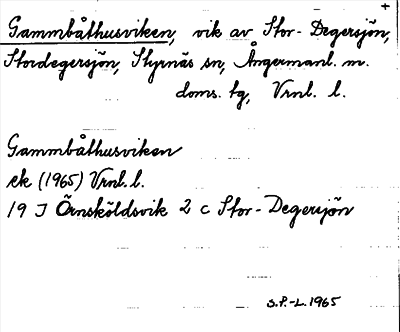 +
Gammbåthusviken, vik av Stor-Degersjön,
Stordegersjön, Styrnäs sn, Ångermanl. m.
doms. tg, Vrnl. l.
Gammbåthusviken
ek (1965) Vrnl. l.
19 J Örnsköldsvik 2 c Stor-Degersjön
S.P.-L. 1965